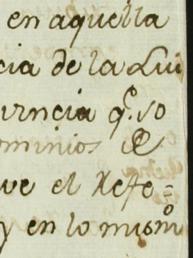 en aquella
cia de la Lui
urncia q.e so
ominios &
ve el Refe=
y en lo mism.o